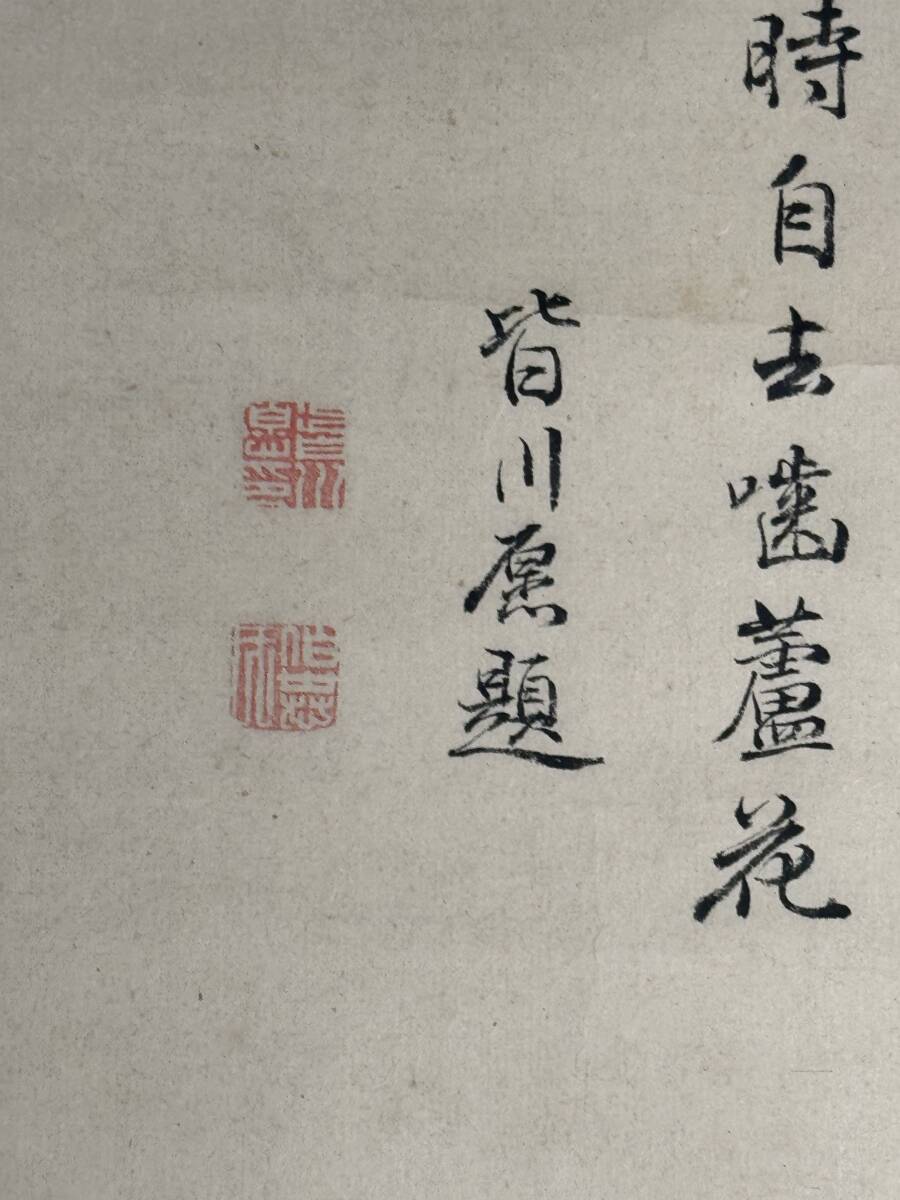 時自去嚙蘆花
皆川愿題